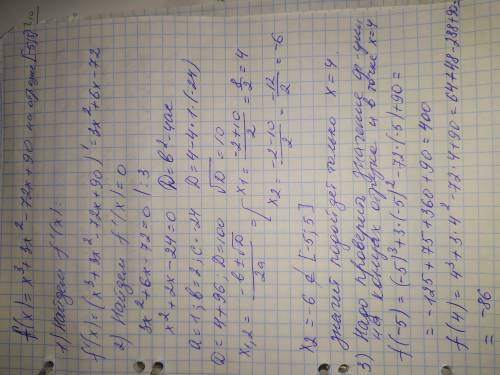 f(x) = x³ + 3x² - 72x + 90 на отрезке [-5;5]
1) Найдем f'(x):
f'(x) = (x³ + 3x² - 72x + 90)' = 3x² + 6x - 72
2) Найдем f'(x) = 0
3x² + 6x - 72 = 0 |:3
x² + 2x - 24 = 0 D = b² - 4ac
a = 1; b = 2, c = -24 D = 4 - 4·1·(-24)
D = 4 + 96, D = 100 √D = 10
x1,2 = -b ± √D / 2a = [ x1 = -2+10 / 2 = 8/2 = 4
x2 = -2-10 / 2 = -12/2 = -6
x2 = -6 ∉ [-5;5]
значит подойдет только x = 4
3) Надо проверить значение функции
на концах отрезка и в точке x=4
f(-5) = (-5)³ + 3·(-5)² - 72·(-5) + 90 =
= -125 + 75 + 360 + 90 = 400
f(4) = 4³ + 3·4² - 72·4 + 90 = 64 + 48 - 288 + 90 =
= -86